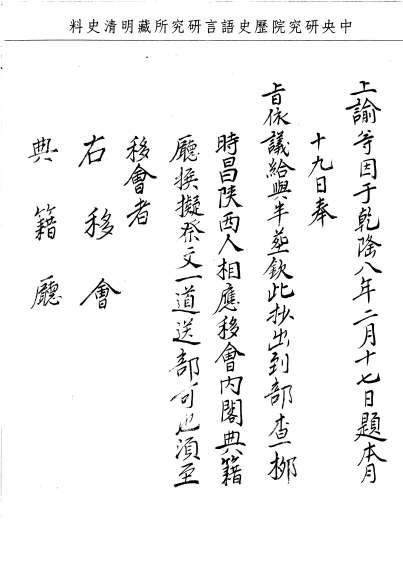 中央研究院歷史語言研究所藏明清史料
上諭等因于乾隆八年二月十七日題本月
十九日奉
旨依議給與半塟欽此抄出到部查柳
時昌陝西人相應移會內閣典籍
廳撰擬祭文一道送部可也須至
移會者
右移會
典籍廳